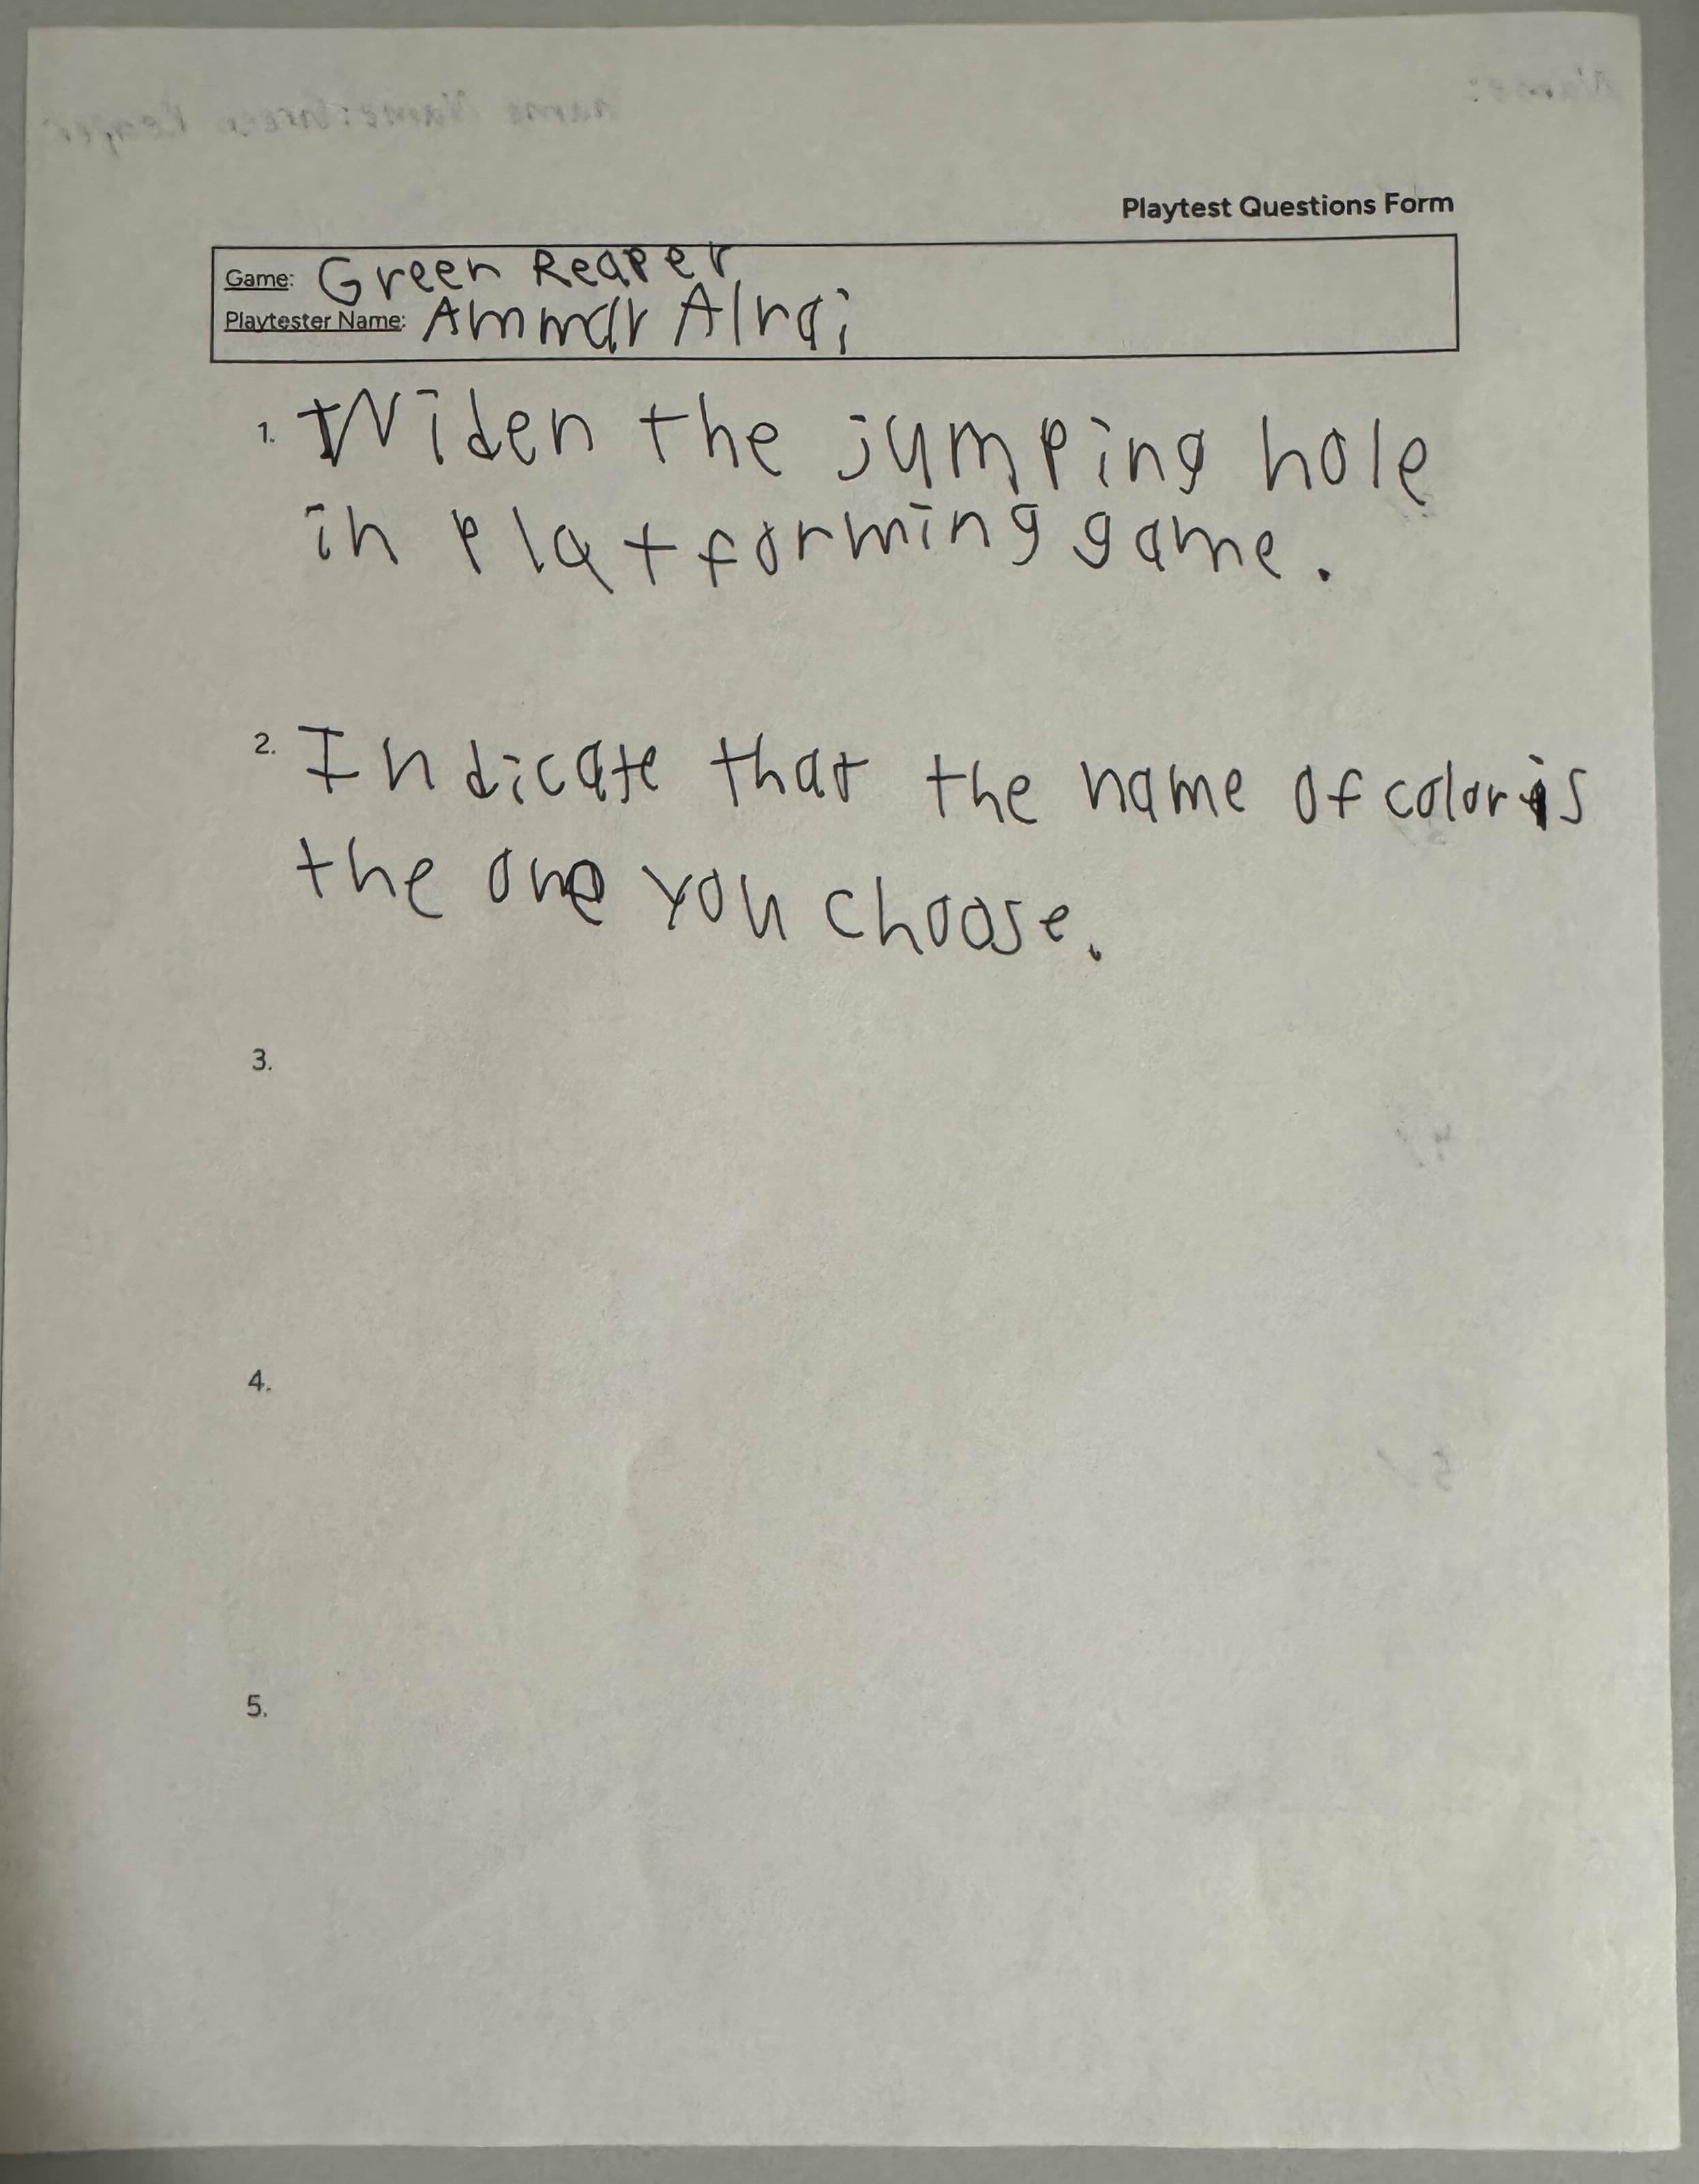 Playtest Questions Form
Game: Green Reaper
Playtester Name: Ammar Alrai
1. Widen the jumping hole
in platforming game.
2. Indicate that the name of color is
the one you choose.
3.
4.
5.